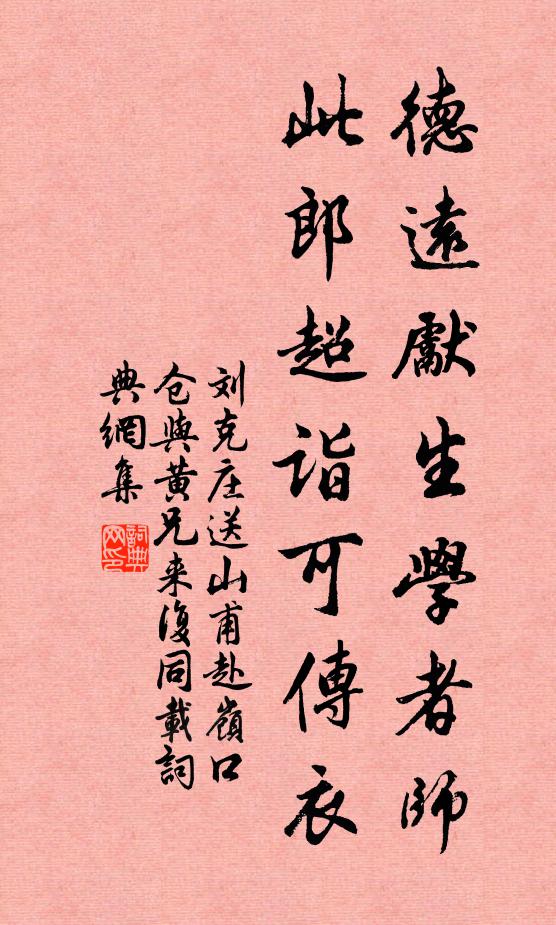 德遠獻生學者師
此郎超詣可傳衣
刘克庄送山甫赴嶺口
仓與黄兄来復同載詞
典網集
詞典
网印